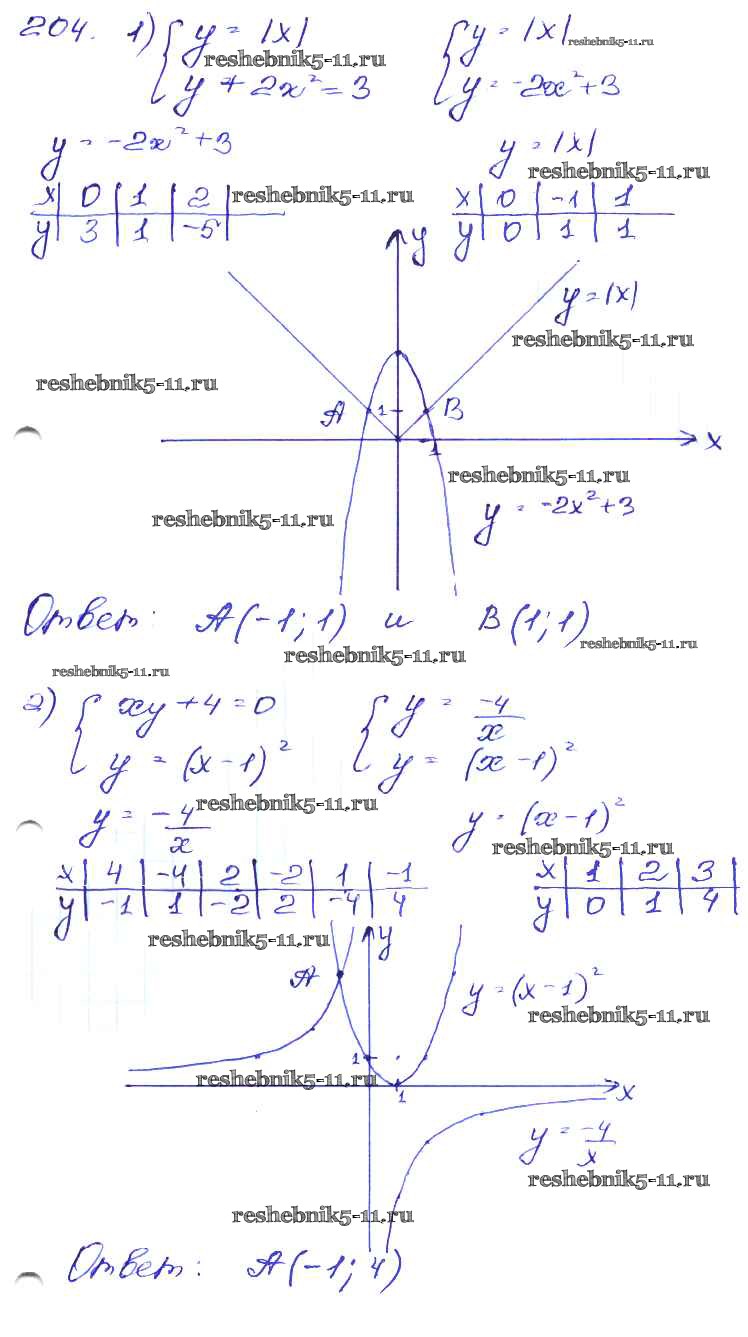 204. 1) { y = |x|  { y = |x| reshebnik5-11.ru
reshebnik5-11.ru
y + 2x² = 3  y = -2x² + 3
y = -2x² + 3  y = |x|
reshebnik5-11.ru
x | 0 | 1 | 2 | reshebnik5-11.ru  x | 0 | -1 | 1
y | 3 | 1 | -5 |  y | 0 | 1 | 1
y
y = |x|
reshebnik5-11.ru
reshebnik5-11.ru
A 1 B
1 x
reshebnik5-11.ru
reshebnik5-11.ru y = -2x² + 3
Ответ: A(-1; 1) и B(1; 1)
reshebnik5-11.ru
reshebnik5-11.ru
reshebnik5-11.ru
2) { xy + 4 = 0  { y = -4/x
y = (x - 1)²  y = (x - 1)²
reshebnik5-11.ru
y = -4/x  y = (x - 1)²
reshebnik5-11.ru
x | 4 | -4 | 2 | -2 | 1 | -1  x | 1 | 2 | 3
y | -1 | 1 | -2 | 2 | -4 | 4  y | 0 | 1 | 4
reshebnik5-11.ru y
A y = (x - 1)²
reshebnik5-11.ru
1
reshebnik5-11.ru 1 x
y = -4/x
reshebnik5-11.ru
reshebnik5-11.ru
Ответ: A(-1; 4)